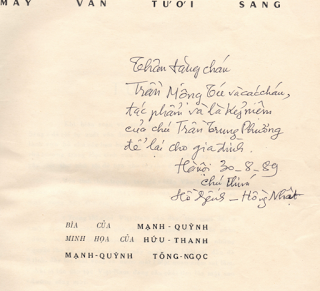 MÂY VẪN TƯƠI SÁNG
Thân tặng cháu
Trần Mộng Tú và các cháu,
tác phẩm và là kỷ niệm
của chú Trần Trung Phương
để lại cho gia đình.
Hà nội 30-8-89
chú thím
Hồng Nhật
BÌA CỦA MẠNH-QUỲNH
MINH HỌA CỦA HỮU-THANH
MẠNH-QUỲNH TỐNG-NGỌC